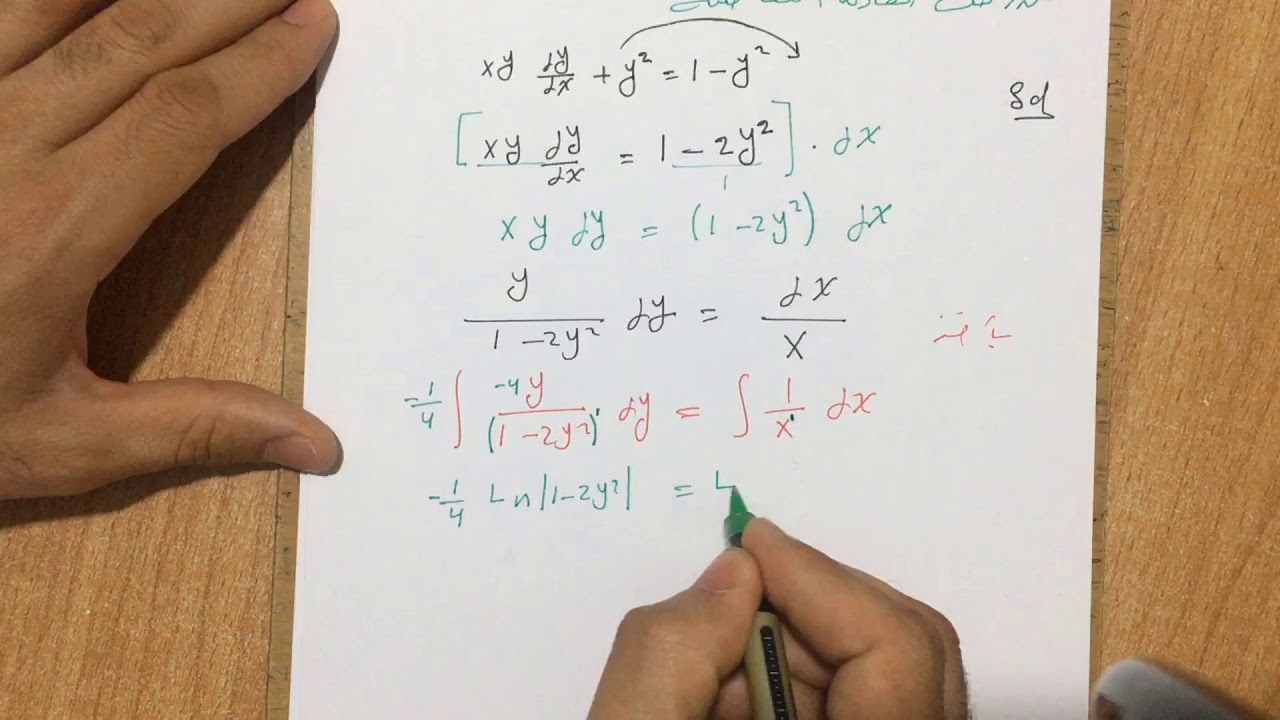 xy dy/dx + y² = 1 - y²
Sol
[xy dy/dx = 1 - 2y²] . dx
xy dy = (1 - 2y²) dx
y/(1 - 2y²) dy = dx/x
-1/4 ∫ -4y/(1 - 2y²)¹ dy = ∫ 1/x¹ dx
-1/4 Ln|1-2y²| = L